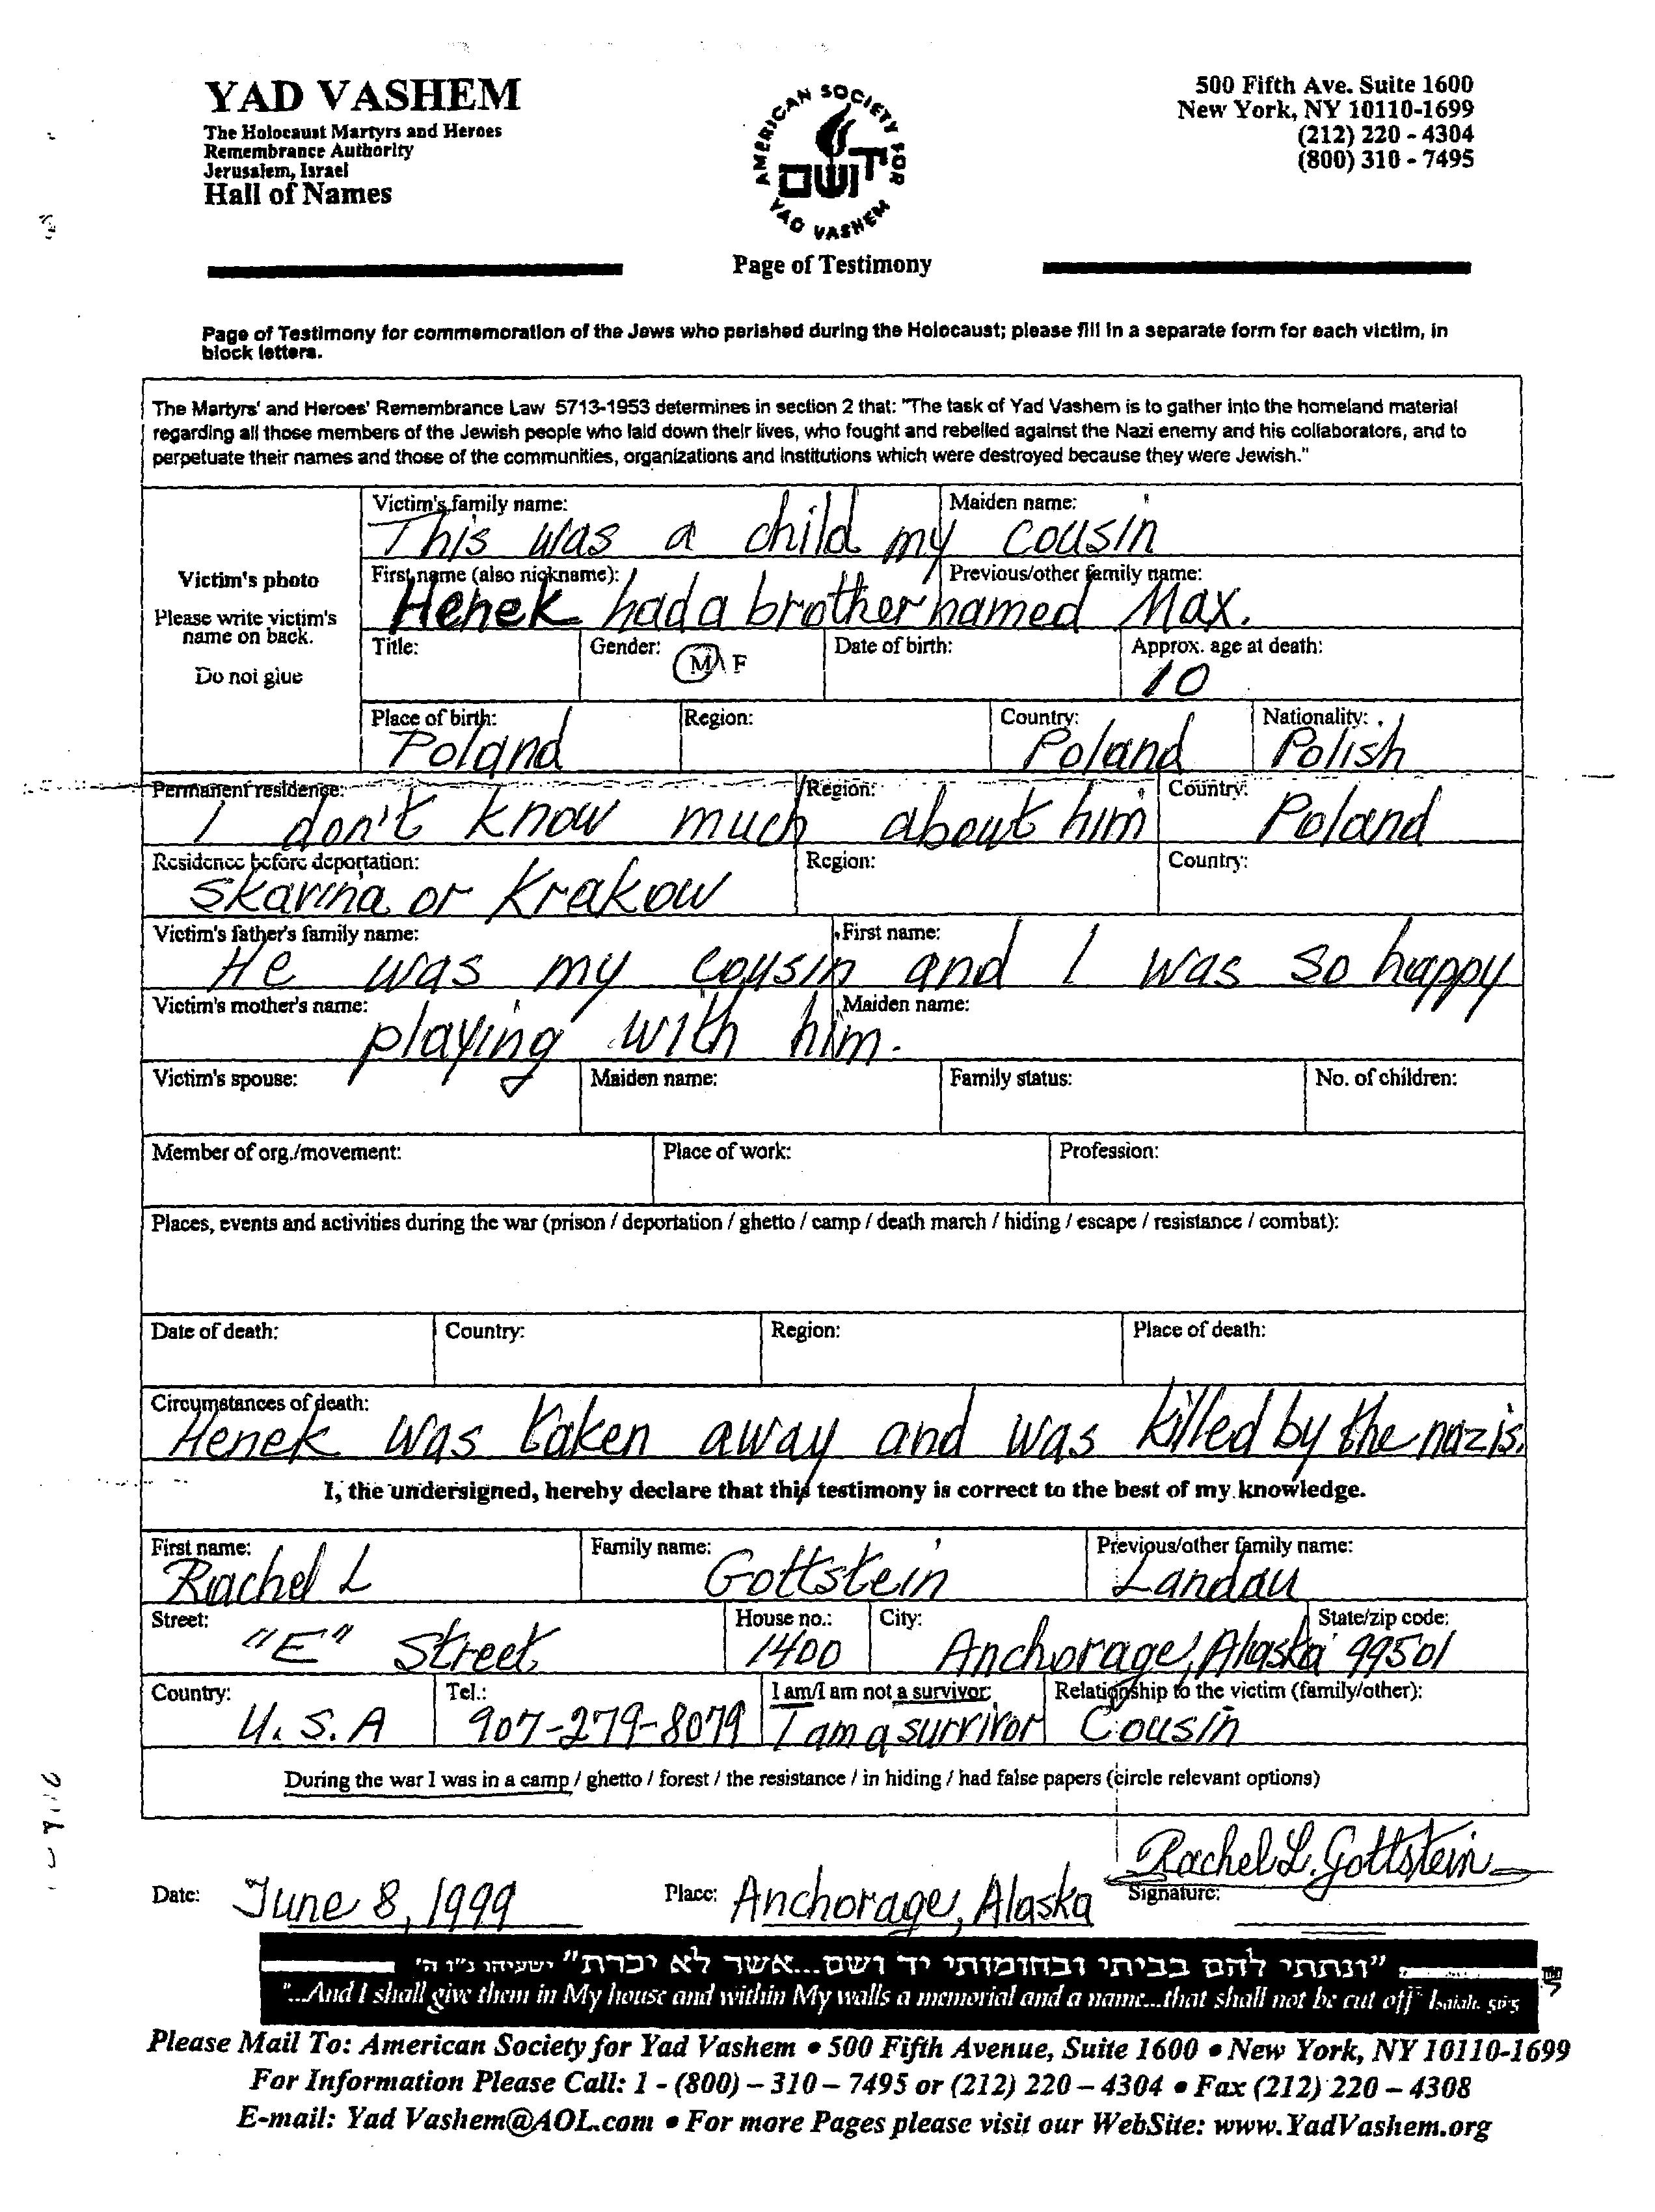 YAD VASHEM
The Holocaust Martyrs and Heroes
Remembrance Authority
Jerusalem, Israel
Hall of Names
AMERICAN SOCIETY FOR
יד ושם
YAD VASHEM
Page of Testimony
500 Fifth Ave. Suite 1600
New York, NY 10110-1699
(212) 220 - 4304
(800) 310 - 7495
Page of Testimony for commemoration of the Jews who perished during the Holocaust; please fill in a separate form for each victim, in
block letters.
The Martyrs' and Heroes' Remembrance Law 5713-1953 determines in section 2 that: "The task of Yad Vashem is to gather into the homeland material
regarding all those members of the Jewish people who laid down their lives, who fought and rebelled against the Nazi enemy and his collaborators, and to
perpetuate their names and those of the communities, organizations and institutions which were destroyed because they were Jewish."
Victim's photo
Please write victim's
name on back.
Do not glue
Victim's family name: Maiden name:
This was a child my cousin
First name (also nickname): Previous/other family name:
Henek had a brother named Max.
Title: Gender: M F Date of birth: Approx. age at death:
10
Place of birth: Region: Country: Nationality:
Poland Poland Polish
Permanent residence: Region: Country:
I don't know much about him Poland
Residence before deportation: Region: Country:
Skarina or Krakow
Victim's father's family name: First name:
He was my cousin and I was so happy
Victim's mother's name: Maiden name:
playing with him.
Victim's spouse: Maiden name: Family status: No. of children:
Member of org./movement: Place of work: Profession:
Places, events and activities during the war (prison / deportation / ghetto / camp / death march / hiding / escape / resistance / combat):
Date of death: Country: Region: Place of death:
Circumstances of death:
Henek was taken away and was killed by the nazis.
I, the undersigned, hereby declare that this testimony is correct to the best of my knowledge.
First name: Family name: Previous/other family name:
Rachel L Gottstein Landau
Street: House no.: City: State/zip code:
"E" Street 1400 Anchorage, Alaska 99501
Country: Tel.: I am/I am not a survivor: Relationship to the victim (family/other):
U.S.A 907-279-8079 I am a survivor Cousin
During the war I was in a camp / ghetto / forest / the resistance / in hiding / had false papers (circle relevant options)
Rachel L. Gottstein
Date: June 8, 1999 Place: Anchorage, Alaska Signature:
"ונתתי להם בביתי ובחומותי יד ושם...אשר לא יכרת" ישעיהו נ"ו ה'
"...And I shall give them in My house and within My walls a memorial and a name...that shall not be cut off" Isaiah. 56:5
Please Mail To: American Society for Yad Vashem • 500 Fifth Avenue, Suite 1600 • New York, NY 10110-1699
For Information Please Call: 1 - (800) – 310 – 7495 or (212) 220 – 4304 • Fax (212) 220 – 4308
E-mail: Yad Vashem@AOL.com • For more Pages please visit our WebSite: www.YadVashem.org